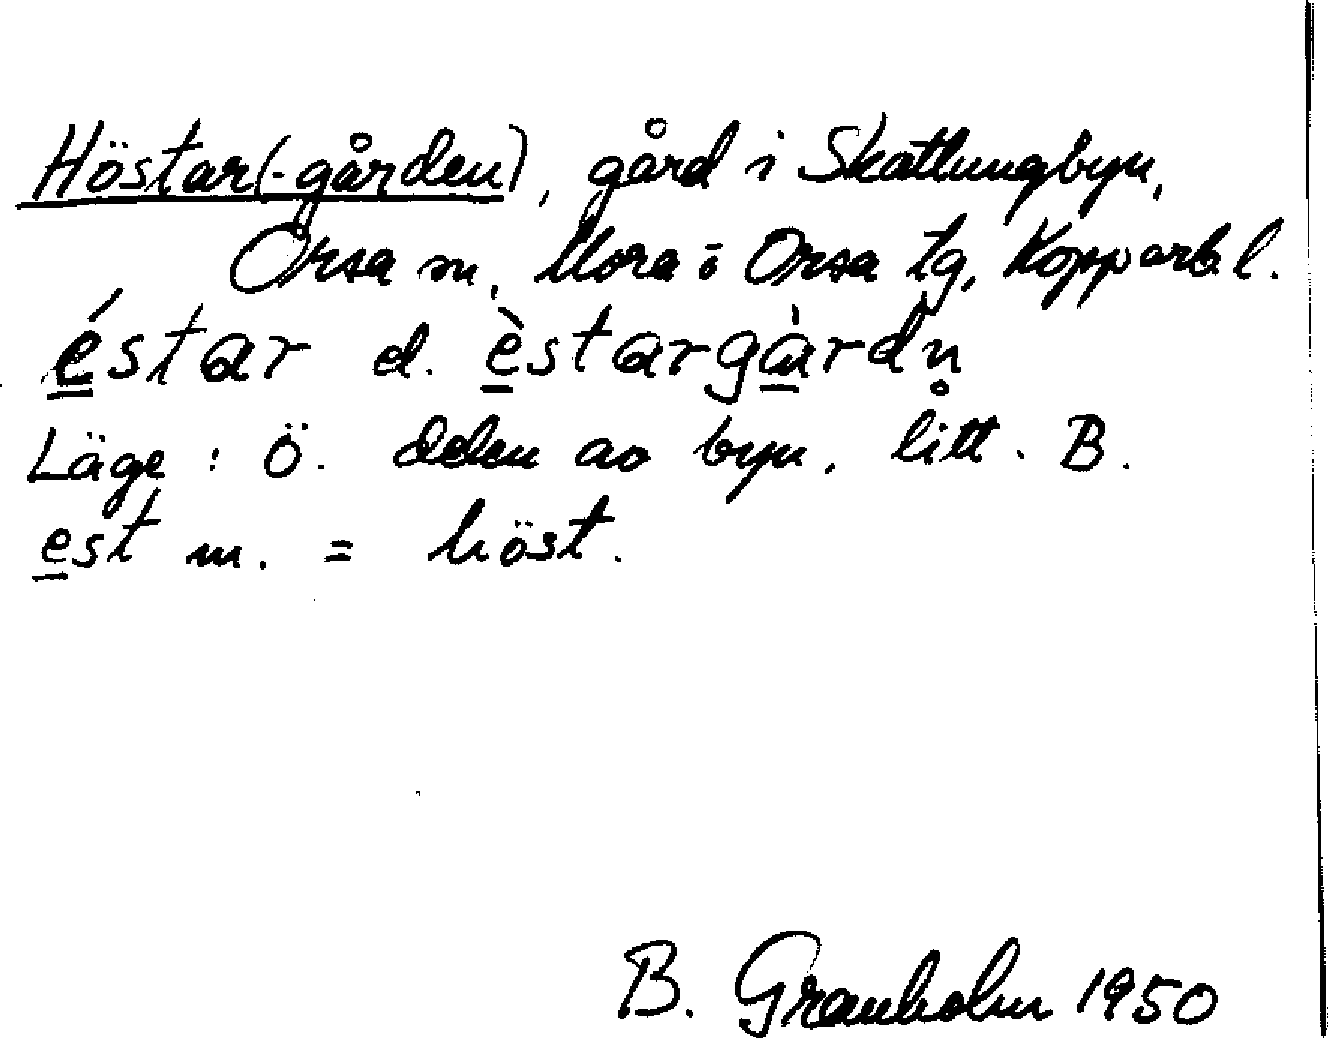 Höstar(-gården), gård i Skattungbyn,
Orsa sn, Mora o Orsa tg, Kopparb. l.
é̲star el. è̲stargå̲̀rdn̥
Läge: Ö. delen av byn, litt. B.
e̲st m. = höst.
B. Granholm 1950